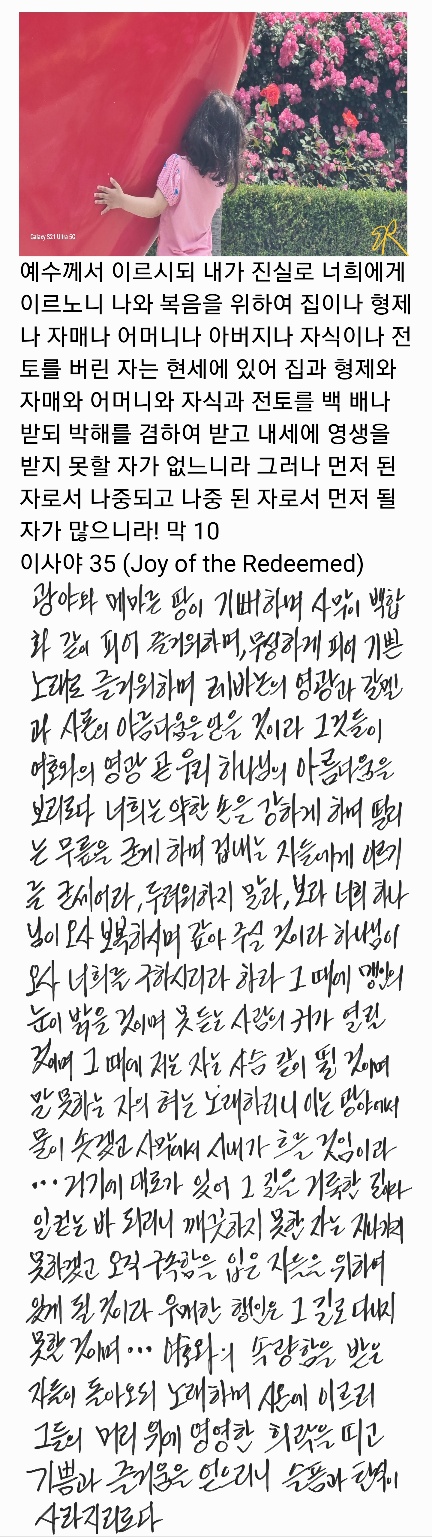 Galaxy S21 Ultra 5G
ER
예수께서 이르시되 내가 진실로 너희에게
이르노니 나와 복음을 위하여 집이나 형제
나 자매나 어머니나 아버지나 자식이나 전
토를 버린 자는 현세에 있어 집과 형제와
자매와 어머니와 자식과 전토를 백 배나
받되 박해를 겸하여 받고 내세에 영생을
받지 못할 자가 없느니라 그러나 먼저 된
자로서 나중되고 나중 된 자로서 먼저 될
자가 많으니라! 막 10
이사야 35 (Joy of the Redeemed)
광야와 메마른 땅이 기뻐하며 사막이 백합
화 같이 피어 즐거워하며, 무성하게 피어 기쁜
노래로 즐거워하며 레바논의 영광과 갈멜
과 사론의 아름다움을 얻을 것이라 그것들이
여호와의 영광 곧 우리 하나님의 아름다움을
보리로다 너희는 약한 손을 강하게 하며 떨리
는 무릎을 굳게 하며 겁내는 자들에게 이르기
를 굳세어라, 두려워하지 말라, 보라 너희 하나
님이 오사 보복하시며 갚아 주실 것이라 하나님이
오사 너희를 구하시리라 하라 그 때에 맹인의
눈이 밝을 것이며 못 듣는 사람의 귀가 열릴
것이며 그 때에 저는 자는 사슴 같이 뛸 것이며
말 못하는 자의 혀는 노래하리니 이는 광야에서
물이 솟겠고 사막에서 시내가 흐를 것임이라
... 거기에 대로가 있어 그 길을 거룩한 길이라
일컫는 바 되리니 깨끗하지 못한 자는 지나가지
못하겠고 오직 구속함을 입은 자들을 위하여
있게 될 것이라 우매한 행인은 그 길로 다니지
못할 것이며 ... 여호와의 속량함을 받은
자들이 돌아오되 노래하며 시온에 이르러
그들의 머리 위에 영영한 희락을 띠고
기쁨과 즐거움을 얻으리니 슬픔과 탄식이
사라지리로다